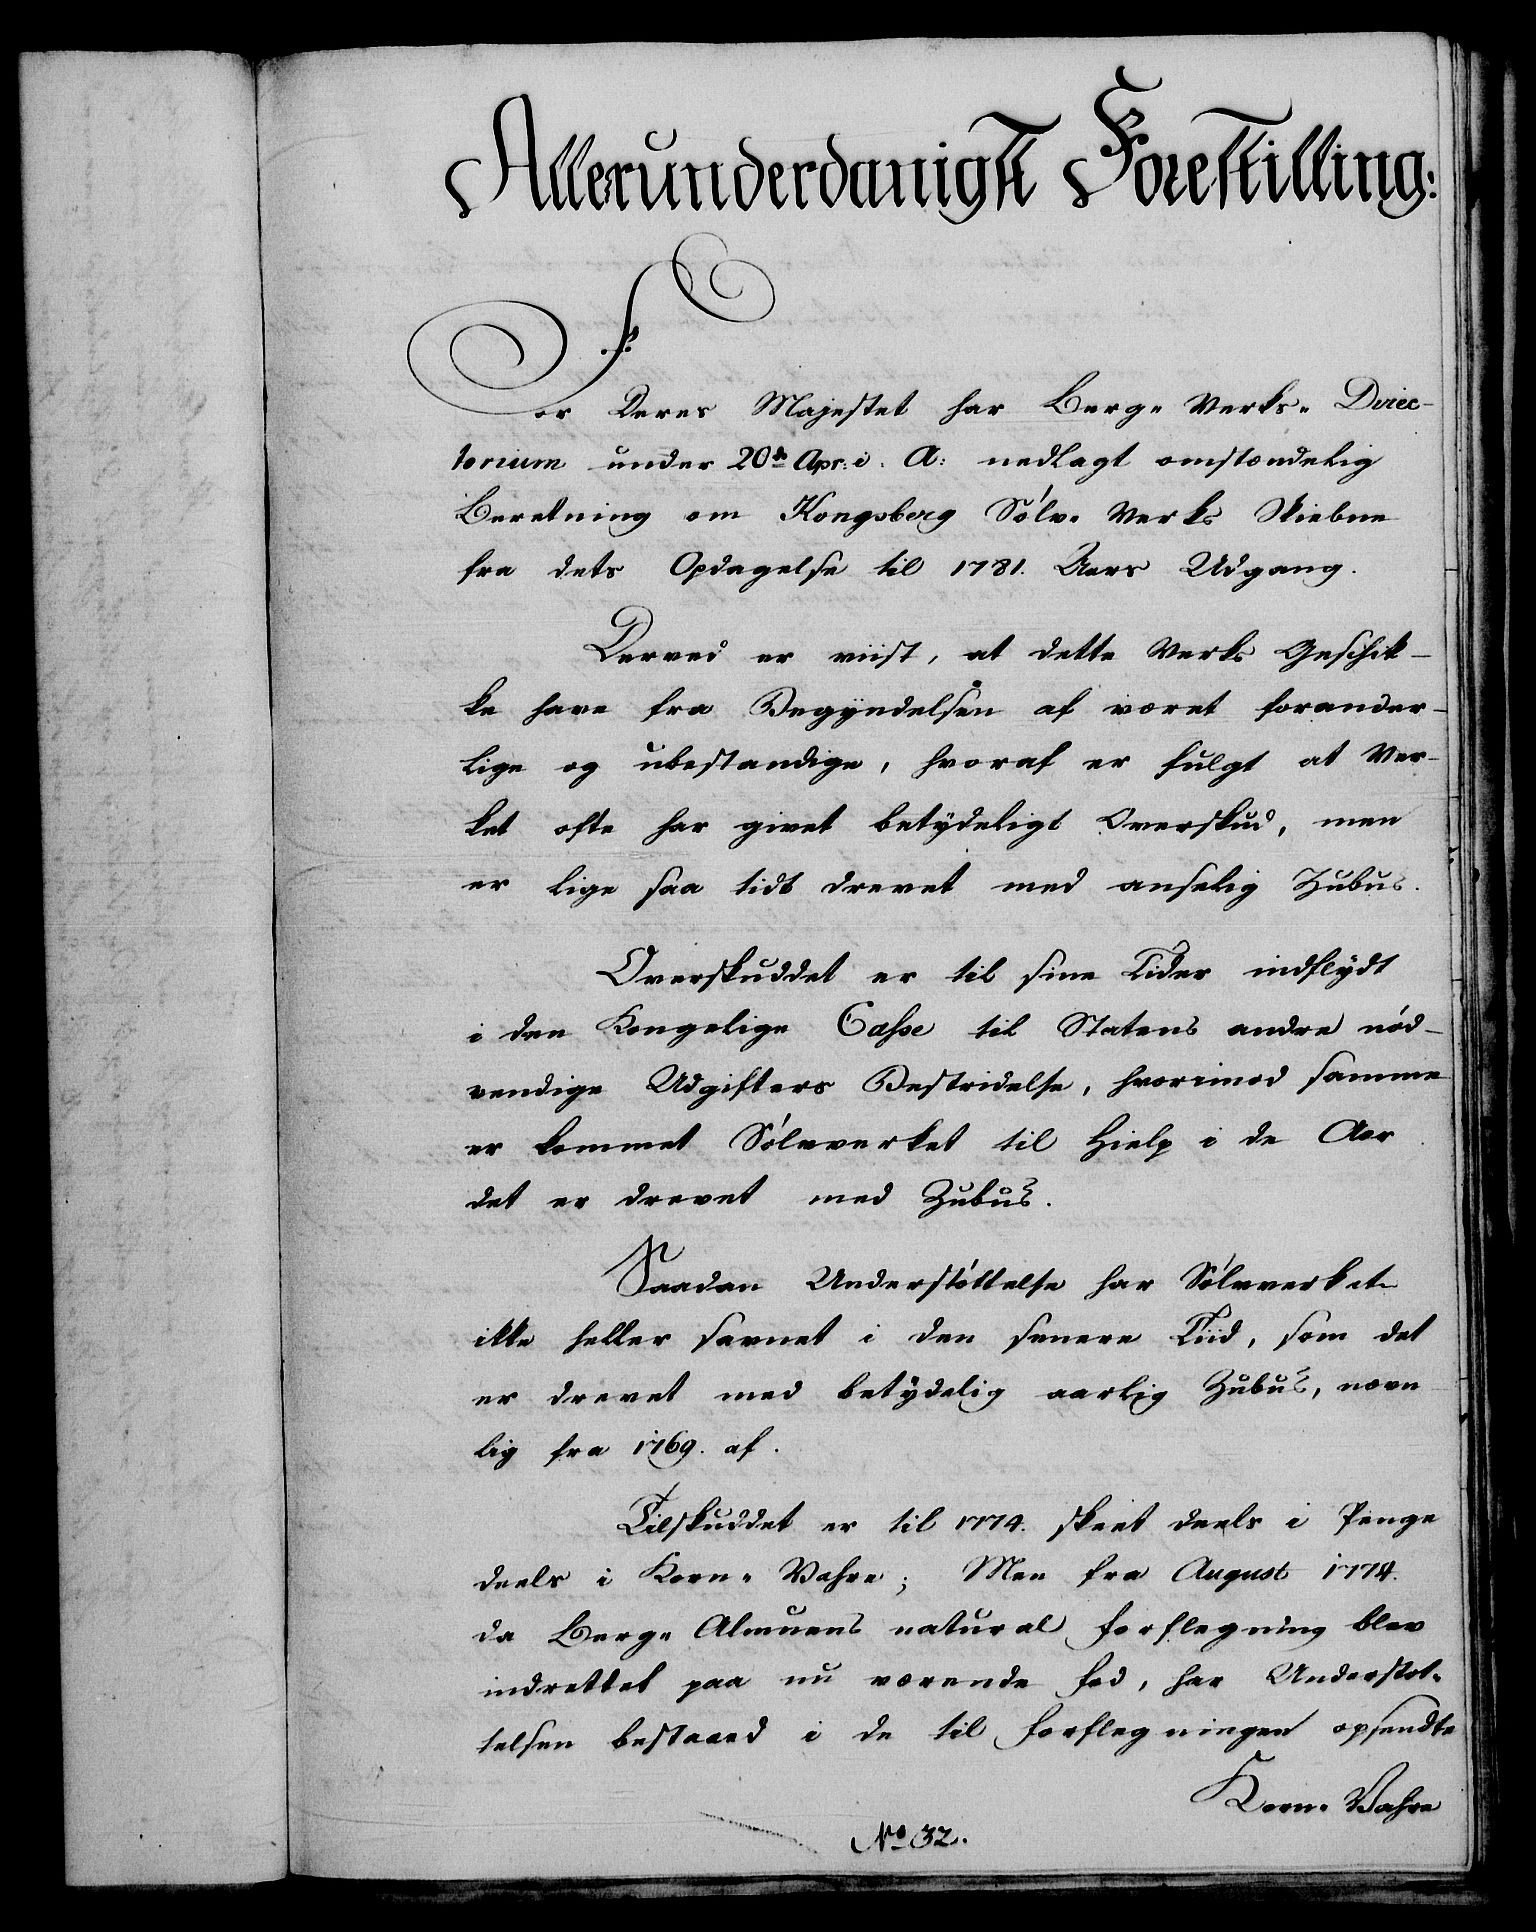 Allerunderdanigst Forestilling:
For Deres Majestet har Berg- Verks- Direc-
torium under 20de Apr: i. A: nedlagt omstændelig
Beretning om Kongsberg Sølv- Verks Skiebne
fra dets Opdagelse til 1781. Aars Udgang.
Derved er viist, at dette Verks Geschik-
ke have fra Begyndelsen af været forander-
lige og ubestandige, hvoraf er fulgt at Ver-
ket ofte har givet betydeligt Overskud, men
er lige saa tidt drevet med anselig Zubus.
Overskuddet er til sine Tider indflydt
i den Kongelige Casse til Statens andre nød-
vendige Udgifters Bestridelse, hvorimod samme
er kommet Sølvverket til Hielp i de Aar
det er drevet med Zubus.
Saadan Understøttelse har Sølvverket
ikke heller savnet i den senere Tiid, som det
er drevet med betydelig aarlig Zubus, nævn
lig fra 1769. af.
Tilskuddet er til 1774. skeet deels i Penge
deels i Korn- Vahre; Men fra August 1774.
da Berg- Almuens natural Forflegning blev
indrettet paa nu værende Fod, har Understøt-
telsen bestaaed i de til Forflegningen opsendte
Korn- Vahre
No 32.